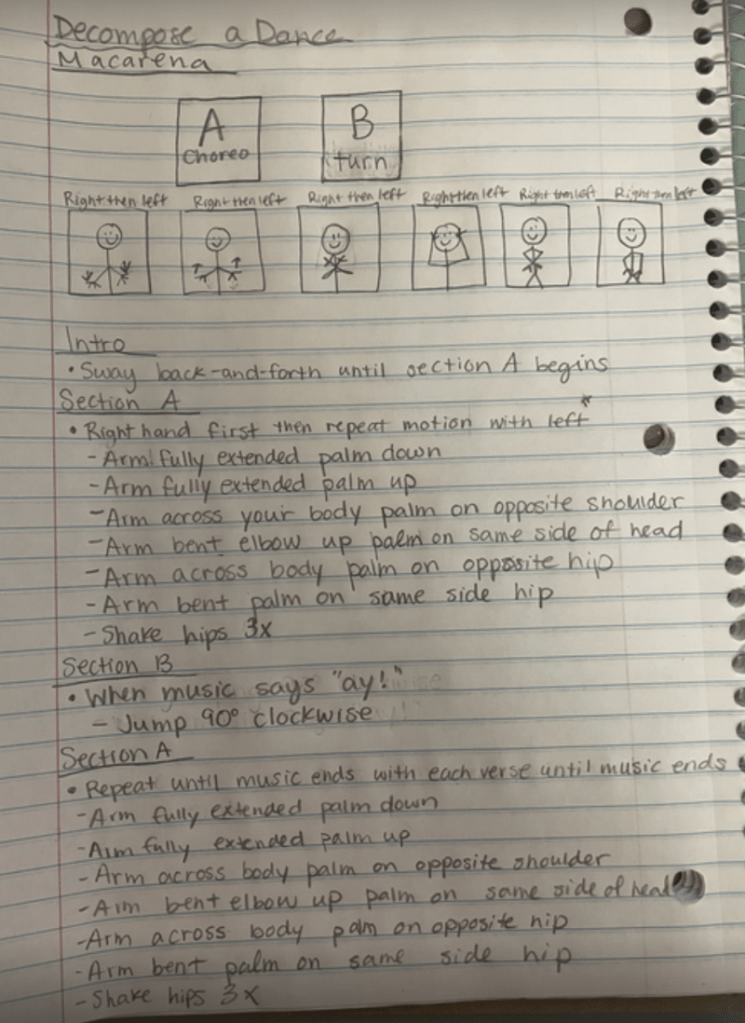 Decompose a Dance
Macarena
A B
Choreo turn
Right then left Right then left Right then left Right then left Right then left Right then left
Intro
• Sway back-and-forth until section A begins
Section A
• Right hand first then repeat motion with left *
- Arm fully extended palm down
- Arm fully extended palm up
- Arm across your body palm on opposite shoulder
- Arm bent elbow up palm on same side of head
- Arm across body palm on opposite hip
- Arm bent palm on same side hip
- Shake hips 3x
Section B
• When music says "ay!"
- Jump 90° clockwise
Section A
• Repeat until music ends with each verse until music ends
- Arm fully extended palm down
- Arm fully extended palm up
- Arm across body palm on opposite shoulder
- Arm bent elbow up palm on same side of head
- Arm across body palm on opposite hip
- Arm bent palm on same side hip
- Shake hips 3x